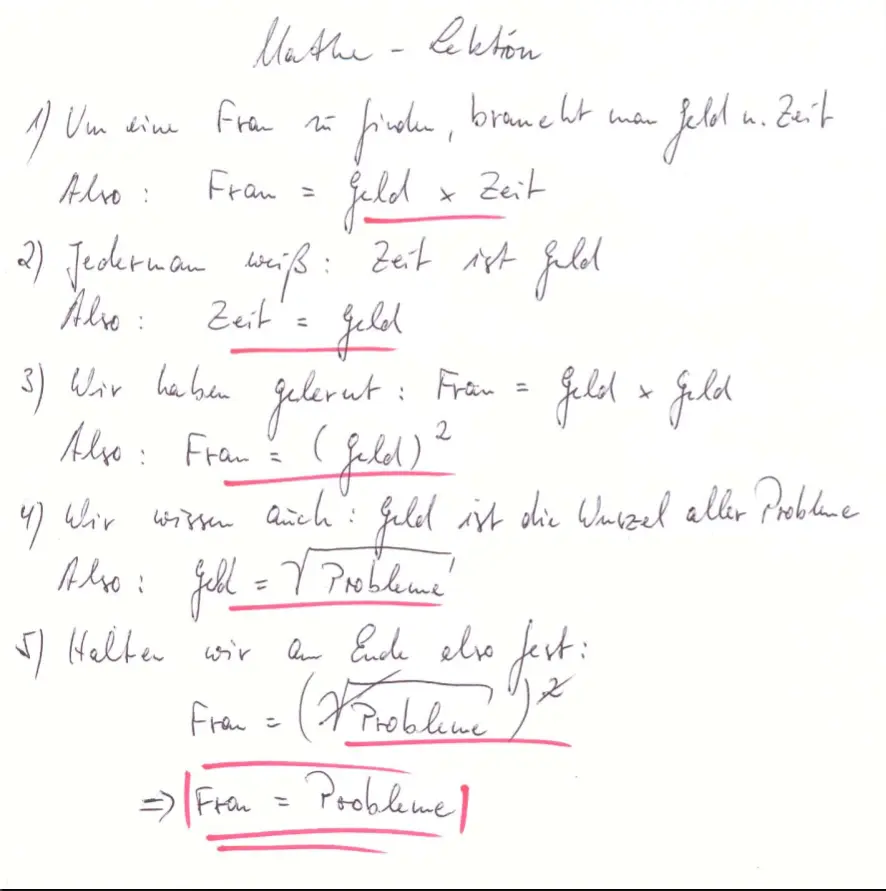 Mathe - Lektion
1) Um eine Frau zu finden, braucht man Geld u. Zeit
Also: Frau = Geld x Zeit
2) Jederman weiß: Zeit ist Geld
Also: Zeit = Geld
3) Wir haben gelernt: Frau = Geld x Geld
Also: Frau = (Geld)²
4) Wir wissen auch: Geld ist die Wurzel aller Probleme
Also: Geld = √Probleme
5) Halten wir am Ende also fest:
Frau = (√Probleme)²
=> Frau = Probleme